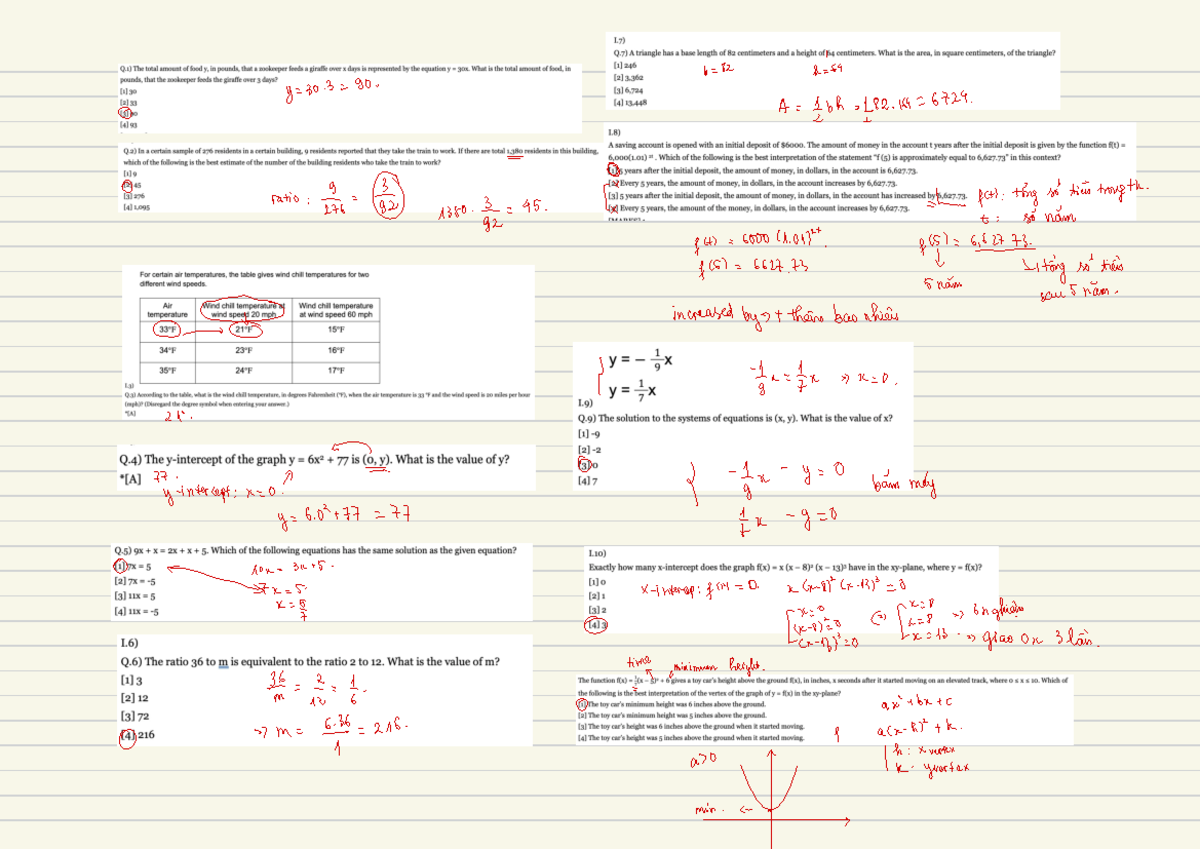 Q.1) The total amount of food y, in pounds, that a zookeeper feeds a giraffe over x days is represented by the equation y = 30x. What is the total amount of food, in
pounds, that the zookeeper feeds the giraffe over 3 days?
[1] 30
[2] 33
[3] 90
[4] 93
y = 30.3 = 90.
Q.2) In a certain sample of 276 residents in a certain building, 9 residents reported that they take the train to work. If there are total 1,380 residents in this building,
which of the following is the best estimate of the number of the building residents who take the train to work?
[1] 9
[2] 45
[3] 276
[4] 1,095
ratio : 9/276 = 3/92
1380 . 3/92 = 45.
For certain air temperatures, the table gives wind chill temperatures for two
different wind speeds.
Air temperature
Wind chill temperature at wind speed 20 mph
Wind chill temperature at wind speed 60 mph
33°F 21°F 15°F
34°F 23°F 16°F
35°F 24°F 17°F
I.3)
Q.3) According to the table, what is the wind chill temperature, in degrees Fahrenheit (°F), when the air temperature is 33 °F and the wind speed is 20 miles per hour
(mph)? (Disregard the degree symbol when entering your answer.)
*[A]
21°.
Q.4) The y-intercept of the graph y = 6x² + 77 is (0, y). What is the value of y?
*[A] 77.
y-intercept: x=0.
y = 6.0² + 77 = 77
Q.5) 9x + x = 2x + x + 5. Which of the following equations has the same solution as the given equation?
[1] 7x = 5
[2] 7x = -5
[3] 11x = 5
[4] 11x = -5
10x = 3x+5.
7x = 5.
x = 5/7
I.6)
Q.6) The ratio 36 to m is equivalent to the ratio 2 to 12. What is the value of m?
[1] 3
[2] 12
[3] 72
[4] 216
36/m = 2/12 = 1/6.
=> m = 6.36/1 = 216.
I.7)
Q.7) A triangle has a base length of 82 centimeters and a height of 164 centimeters. What is the area, in square centimeters, of the triangle?
[1] 246
[2] 3,362
[3] 6,724
[4] 13,448
b = 82
A = 1/2 bh = 1/2 82.164 = 6724.
I.8)
A saving account is opened with an initial deposit of $6000. The amount of money in the account t years after the initial deposit is given by the function f(t) =
6,000(1.01) ²ᵗ . Which of the following is the best interpretation of the statement "f (5) is approximately equal to 6,627.73" in this context?
[1] 5 years after the initial deposit, the amount of money, in dollars, in the account is 6,627.73.
[2] Every 5 years, the amount of money, in dollars, in the account increases by 6,627.73.
[3] 5 years after the initial deposit, the amount of money, in dollars, in the account has increased by 6,627.73.
[4] Every 5 years, the amount of the money, in dollars, in the account increases by 6,627.73.
f(t) : tổng số tiền trong tk.
t : số năm
f(t) = 6000 (1.01)²ᵗ
f(5) = 6627.73
f(5) = 6,627.73.
5 năm
tổng số tiền
sau 5 năm.
increased by -> + thêm bao nhiêu
y = − 1/9 x
y = 1/7 x
-1/9 x = 1/7 x => x=0.
I.9)
Q.9) The solution to the systems of equations is (x, y). What is the value of x?
[1] -9
[2] -2
[3] 0
[4] 7
-1/9 x - y = 0
1/7 x - y = 0
bấm máy
I.10)
Exactly how many x-intercept does the graph f(x) = x (x − 8)² (x − 13)³ have in the xy-plane, where y = f(x)?
[1] 0
[2] 1
[3] 2
[4] 3
x-intercep: f(x) = 0.
x (x-8)² (x-13)³ = 0
x = 0
(x-8)² = 0
(x-13)³ = 0
x = 0
x = 8
x = 13.
=> 6 nghiệm
=> giao Ox 3 lần.
time
minimum height.
The function f(x) = (x − )² + 6 gives a toy car's height above the ground f(x), in inches, x seconds after it started moving on an elevated track, where 0 ≤ x ≤ 10. Which of
the following is the best interpretation of the vertex of the graph of y = f(x) in the xy-plane?
[1] The toy car's minimum height was 6 inches above the ground.
[2] The toy car's minimum height was 5 inches above the ground.
[3] The toy car's height was 6 inches above the ground when it started moving.
[4] The toy car's height was 5 inches above the ground when it started moving.
ax² + bx + c
a(x-h)² + k.
h : x vertex
k : y vertex
a>0
min.